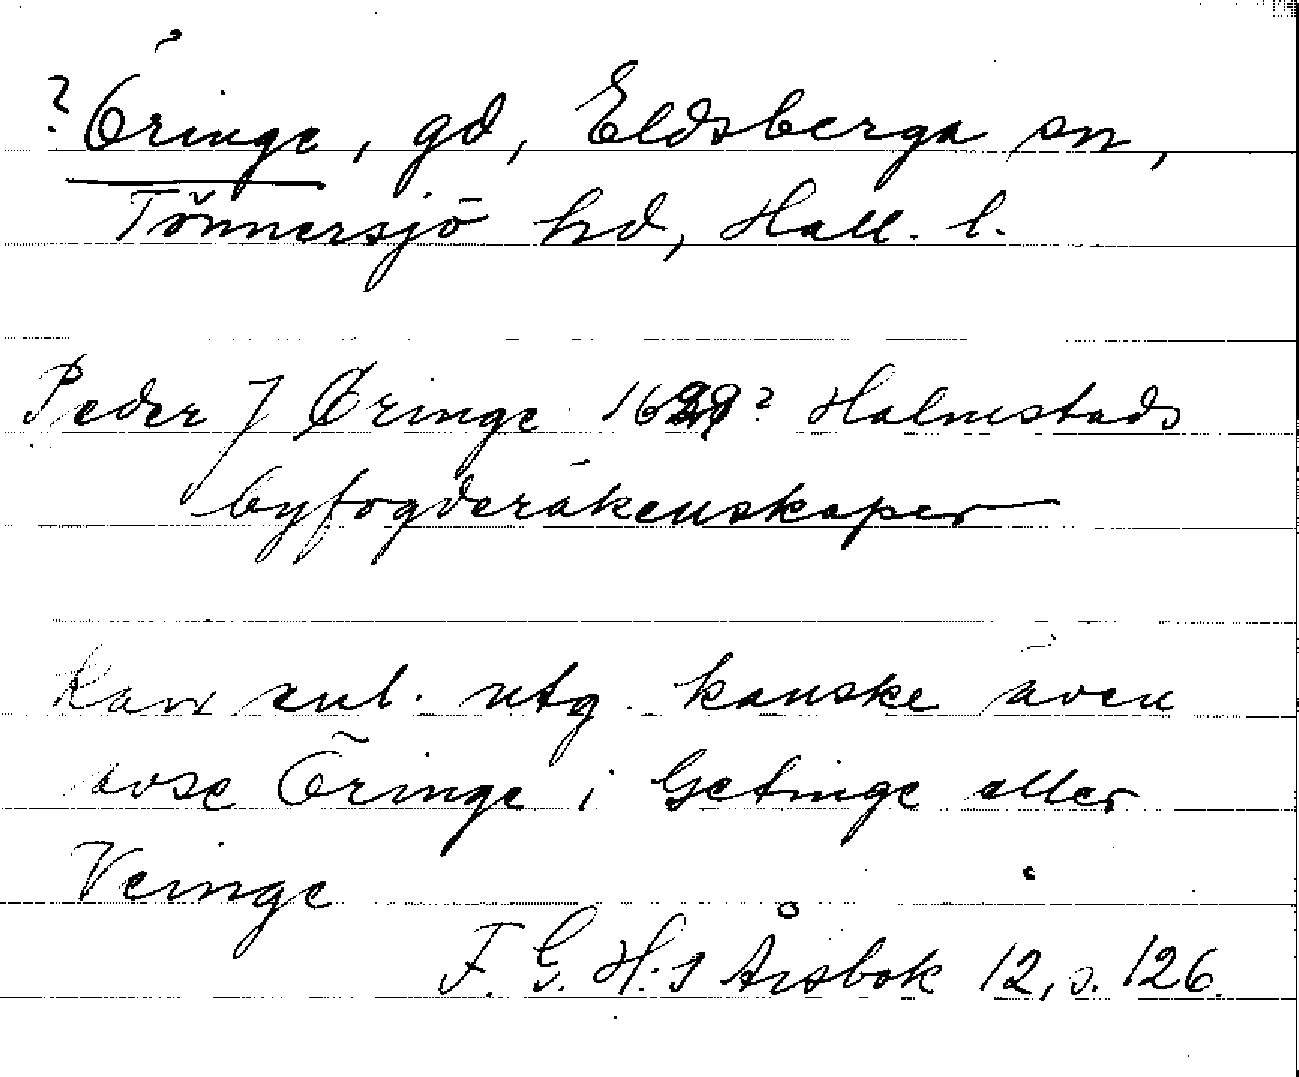 ? Öringe, gd, Eldsberga sn,
Tönnersjö hd, Hall. l.
Peder J Øringe ? Halmstads
byfogderäkenskaper
Kan enl. utg. kanske även
avse Öringe i Getinge eller
Veinge
F. G. H:s Årsbok 12, s. 126.